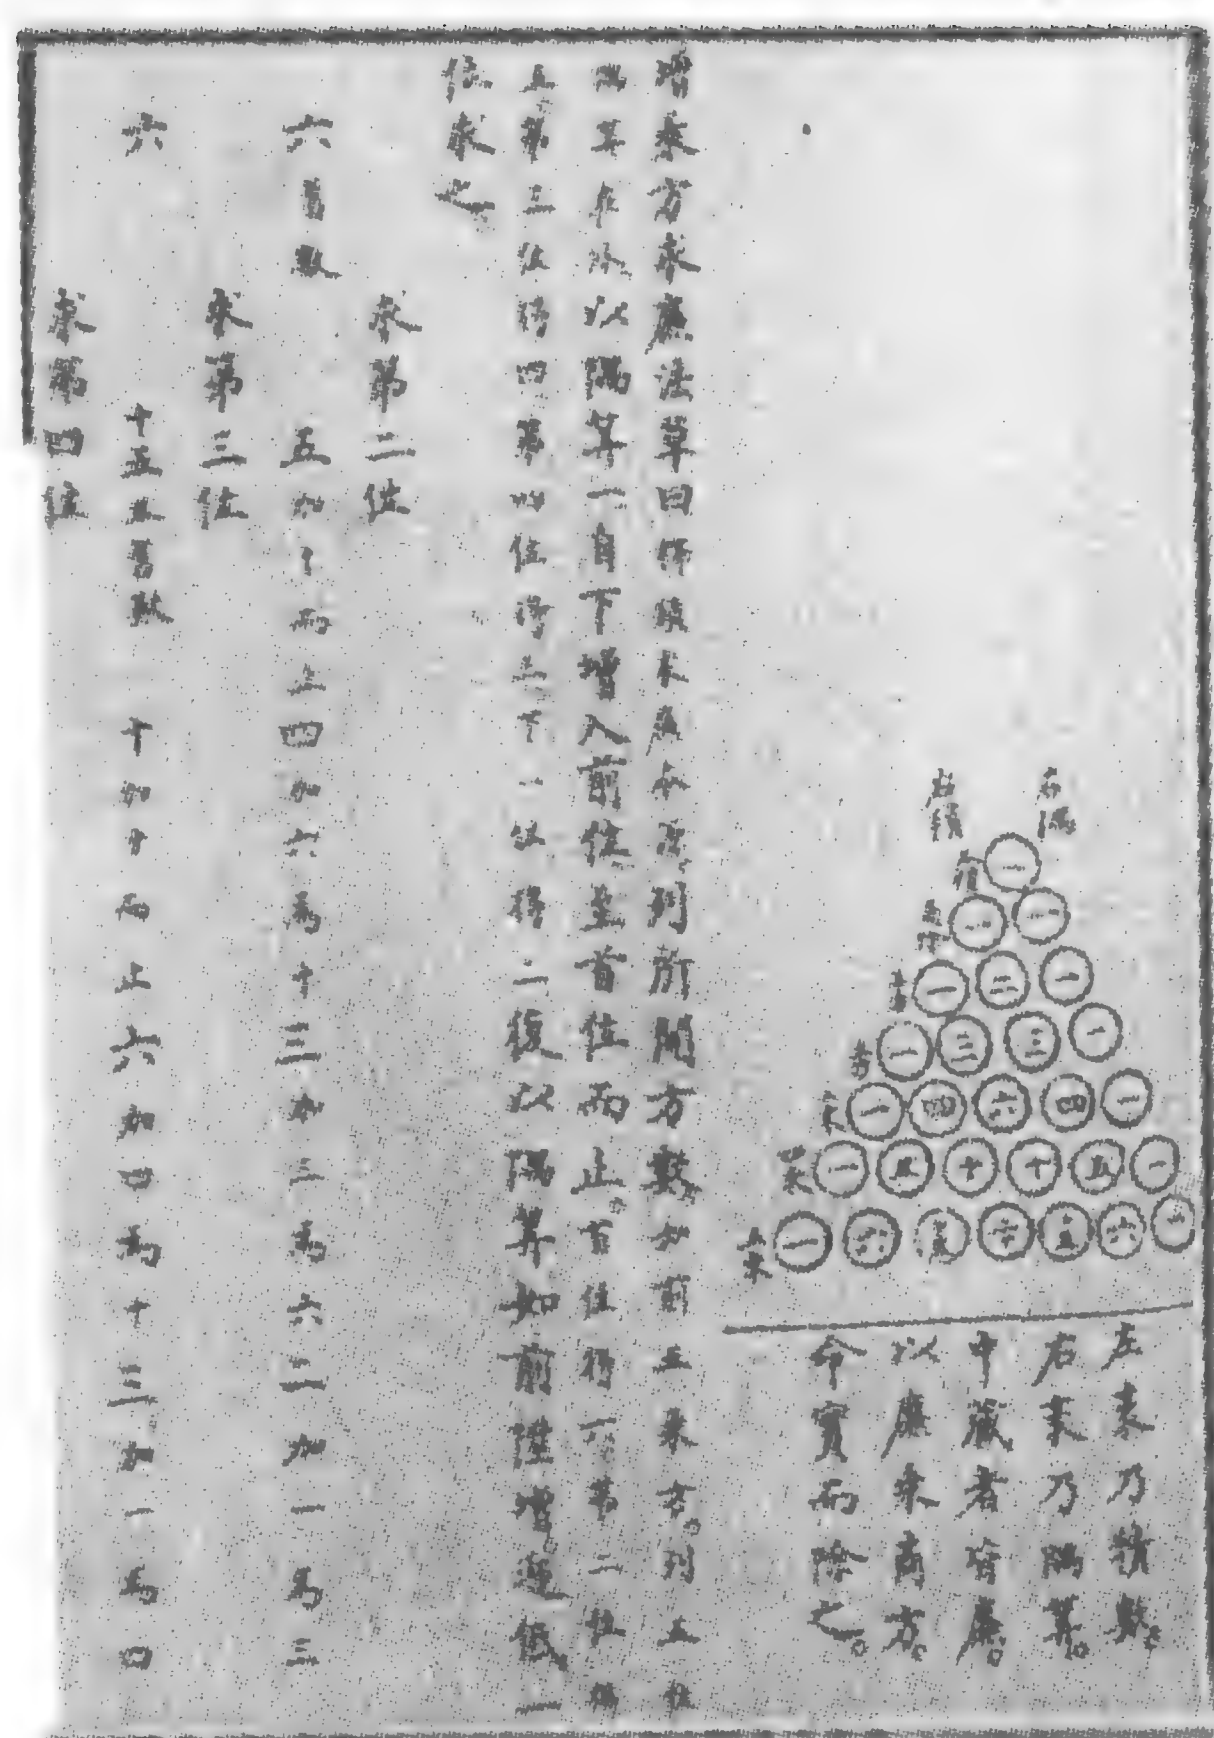 左積
右隅
一
一 一
一 二 一
一 三 三 一
一 四 六 四 一
一 五 十 十 五 一
一 六 十五 二十 十五 六 一
左袤乃積數。
右袤乃隅算。
中藏者皆廉。
以廉乘商方。
命實而除之。
增乘方求廉法草曰釋鎖求廉本源列所開方數如前五乘方列五位
隅算在外以隅算一自下增入前位至首位而止首位得六第二位得
五第三位得四第四位得三下一位得二復以隅算如前陞增遞低一
位求之
求第二位
六舊數 五加十而止四加六為十三加三為六二加一為三
求第三位
六 十五並舊數 十加十而止六加四為十三加一為四
求第四位